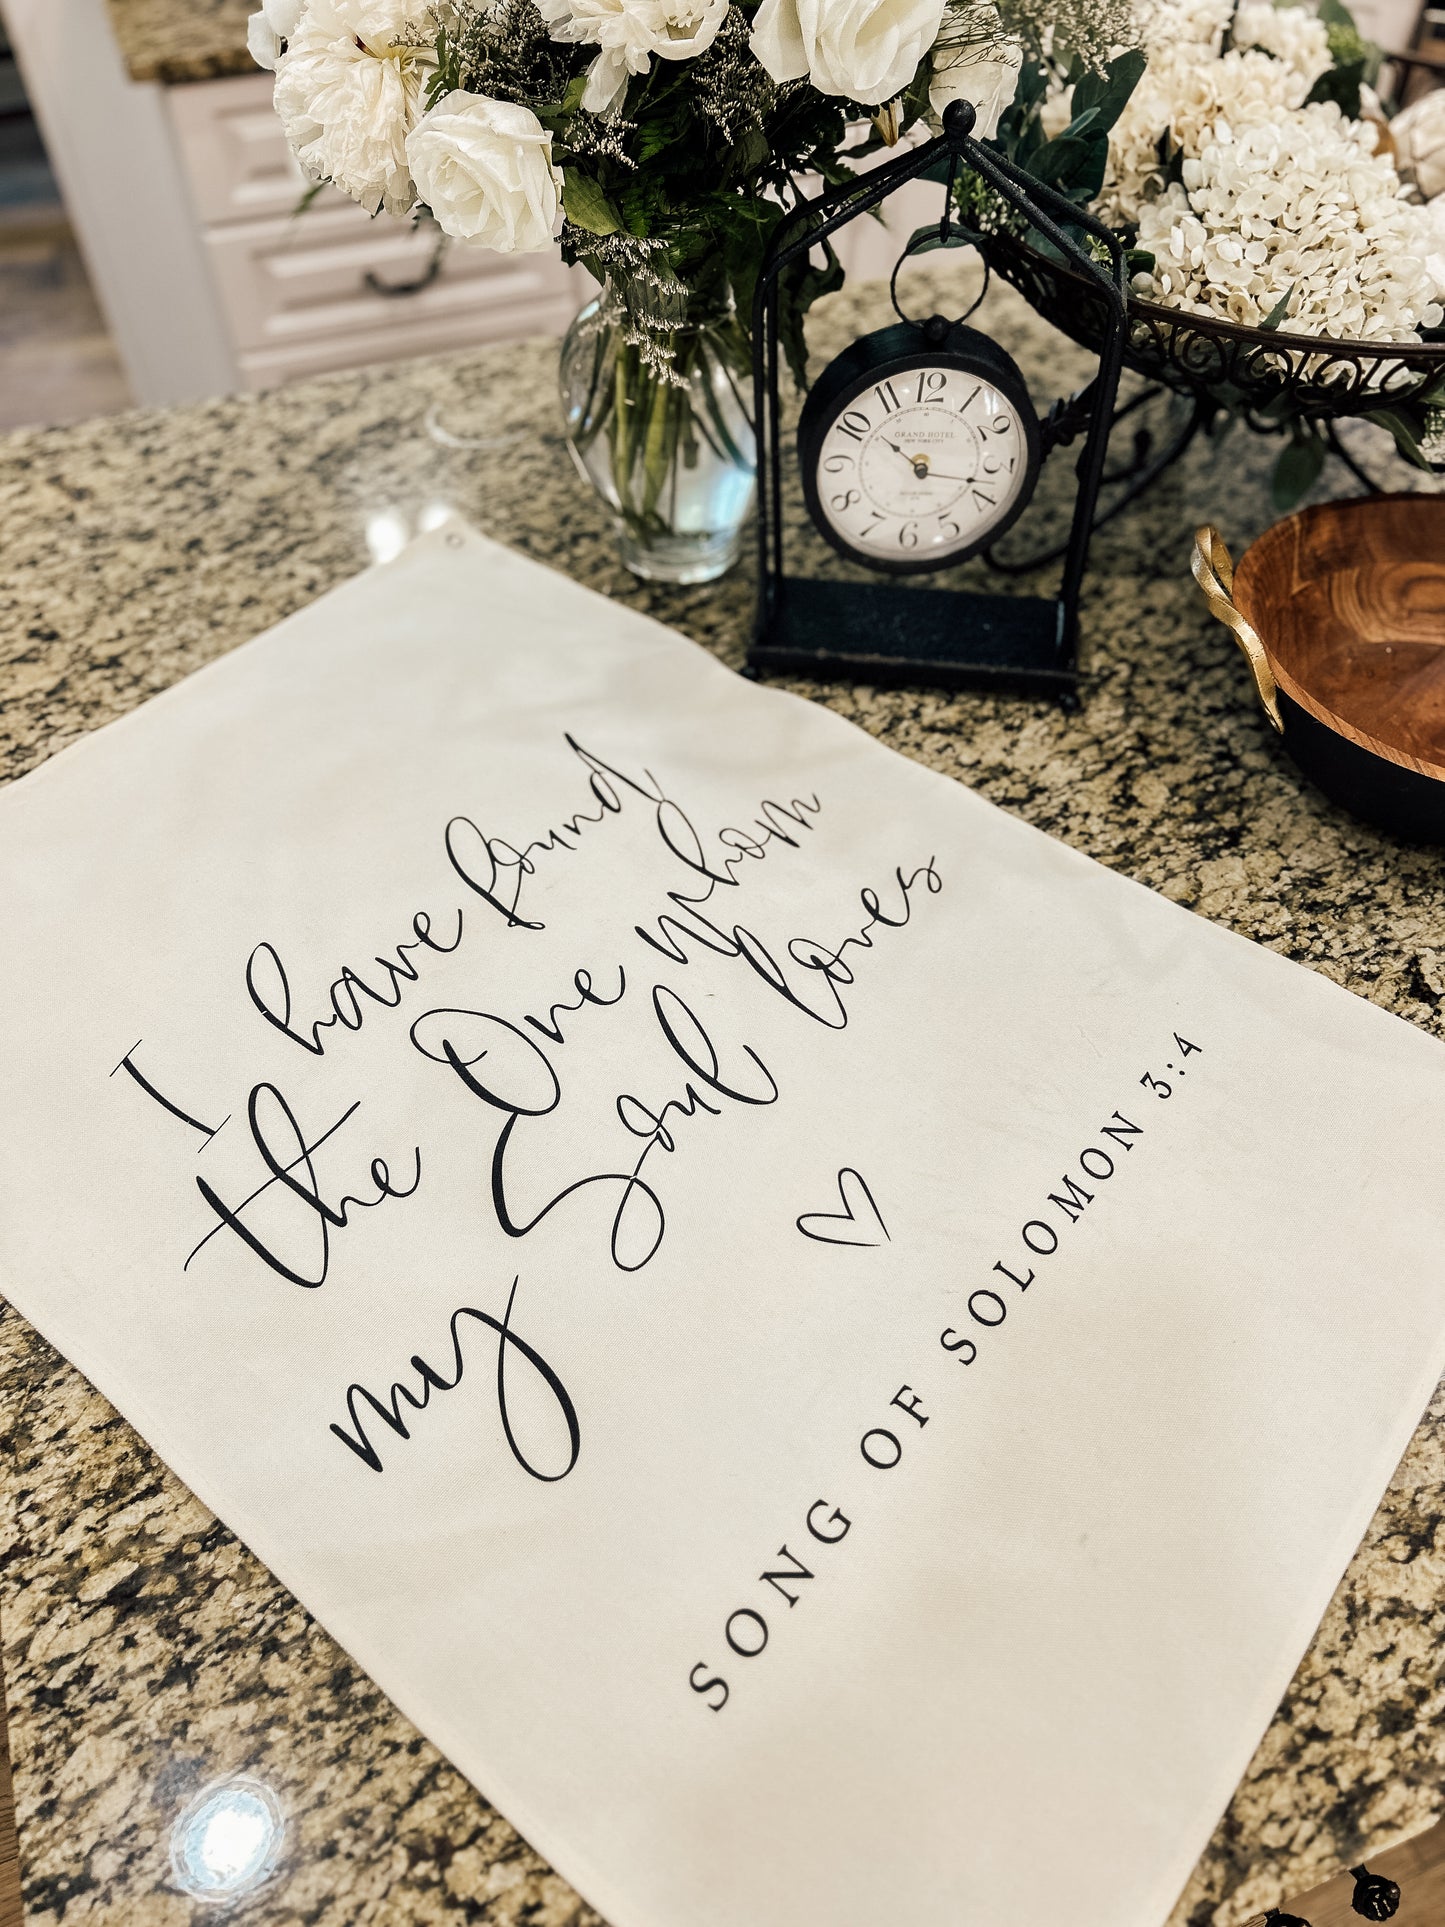 I have found
the One whom
my Soul loves
SONG OF SOLOMON 3:4
GRAND HOTEL
NEW YORK CITY
12
1
2
3
4
5
6
7
8
9
10
11